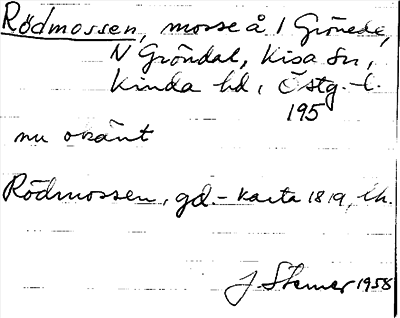 Rödmossen, mosse å 1 Grönede,
N Gröndal, Kisa sn,
Kinda hd, Östg. l.
195
nu okänt
Rödmossen, gd. - karta 1819, Lk.
J Stemer 1958